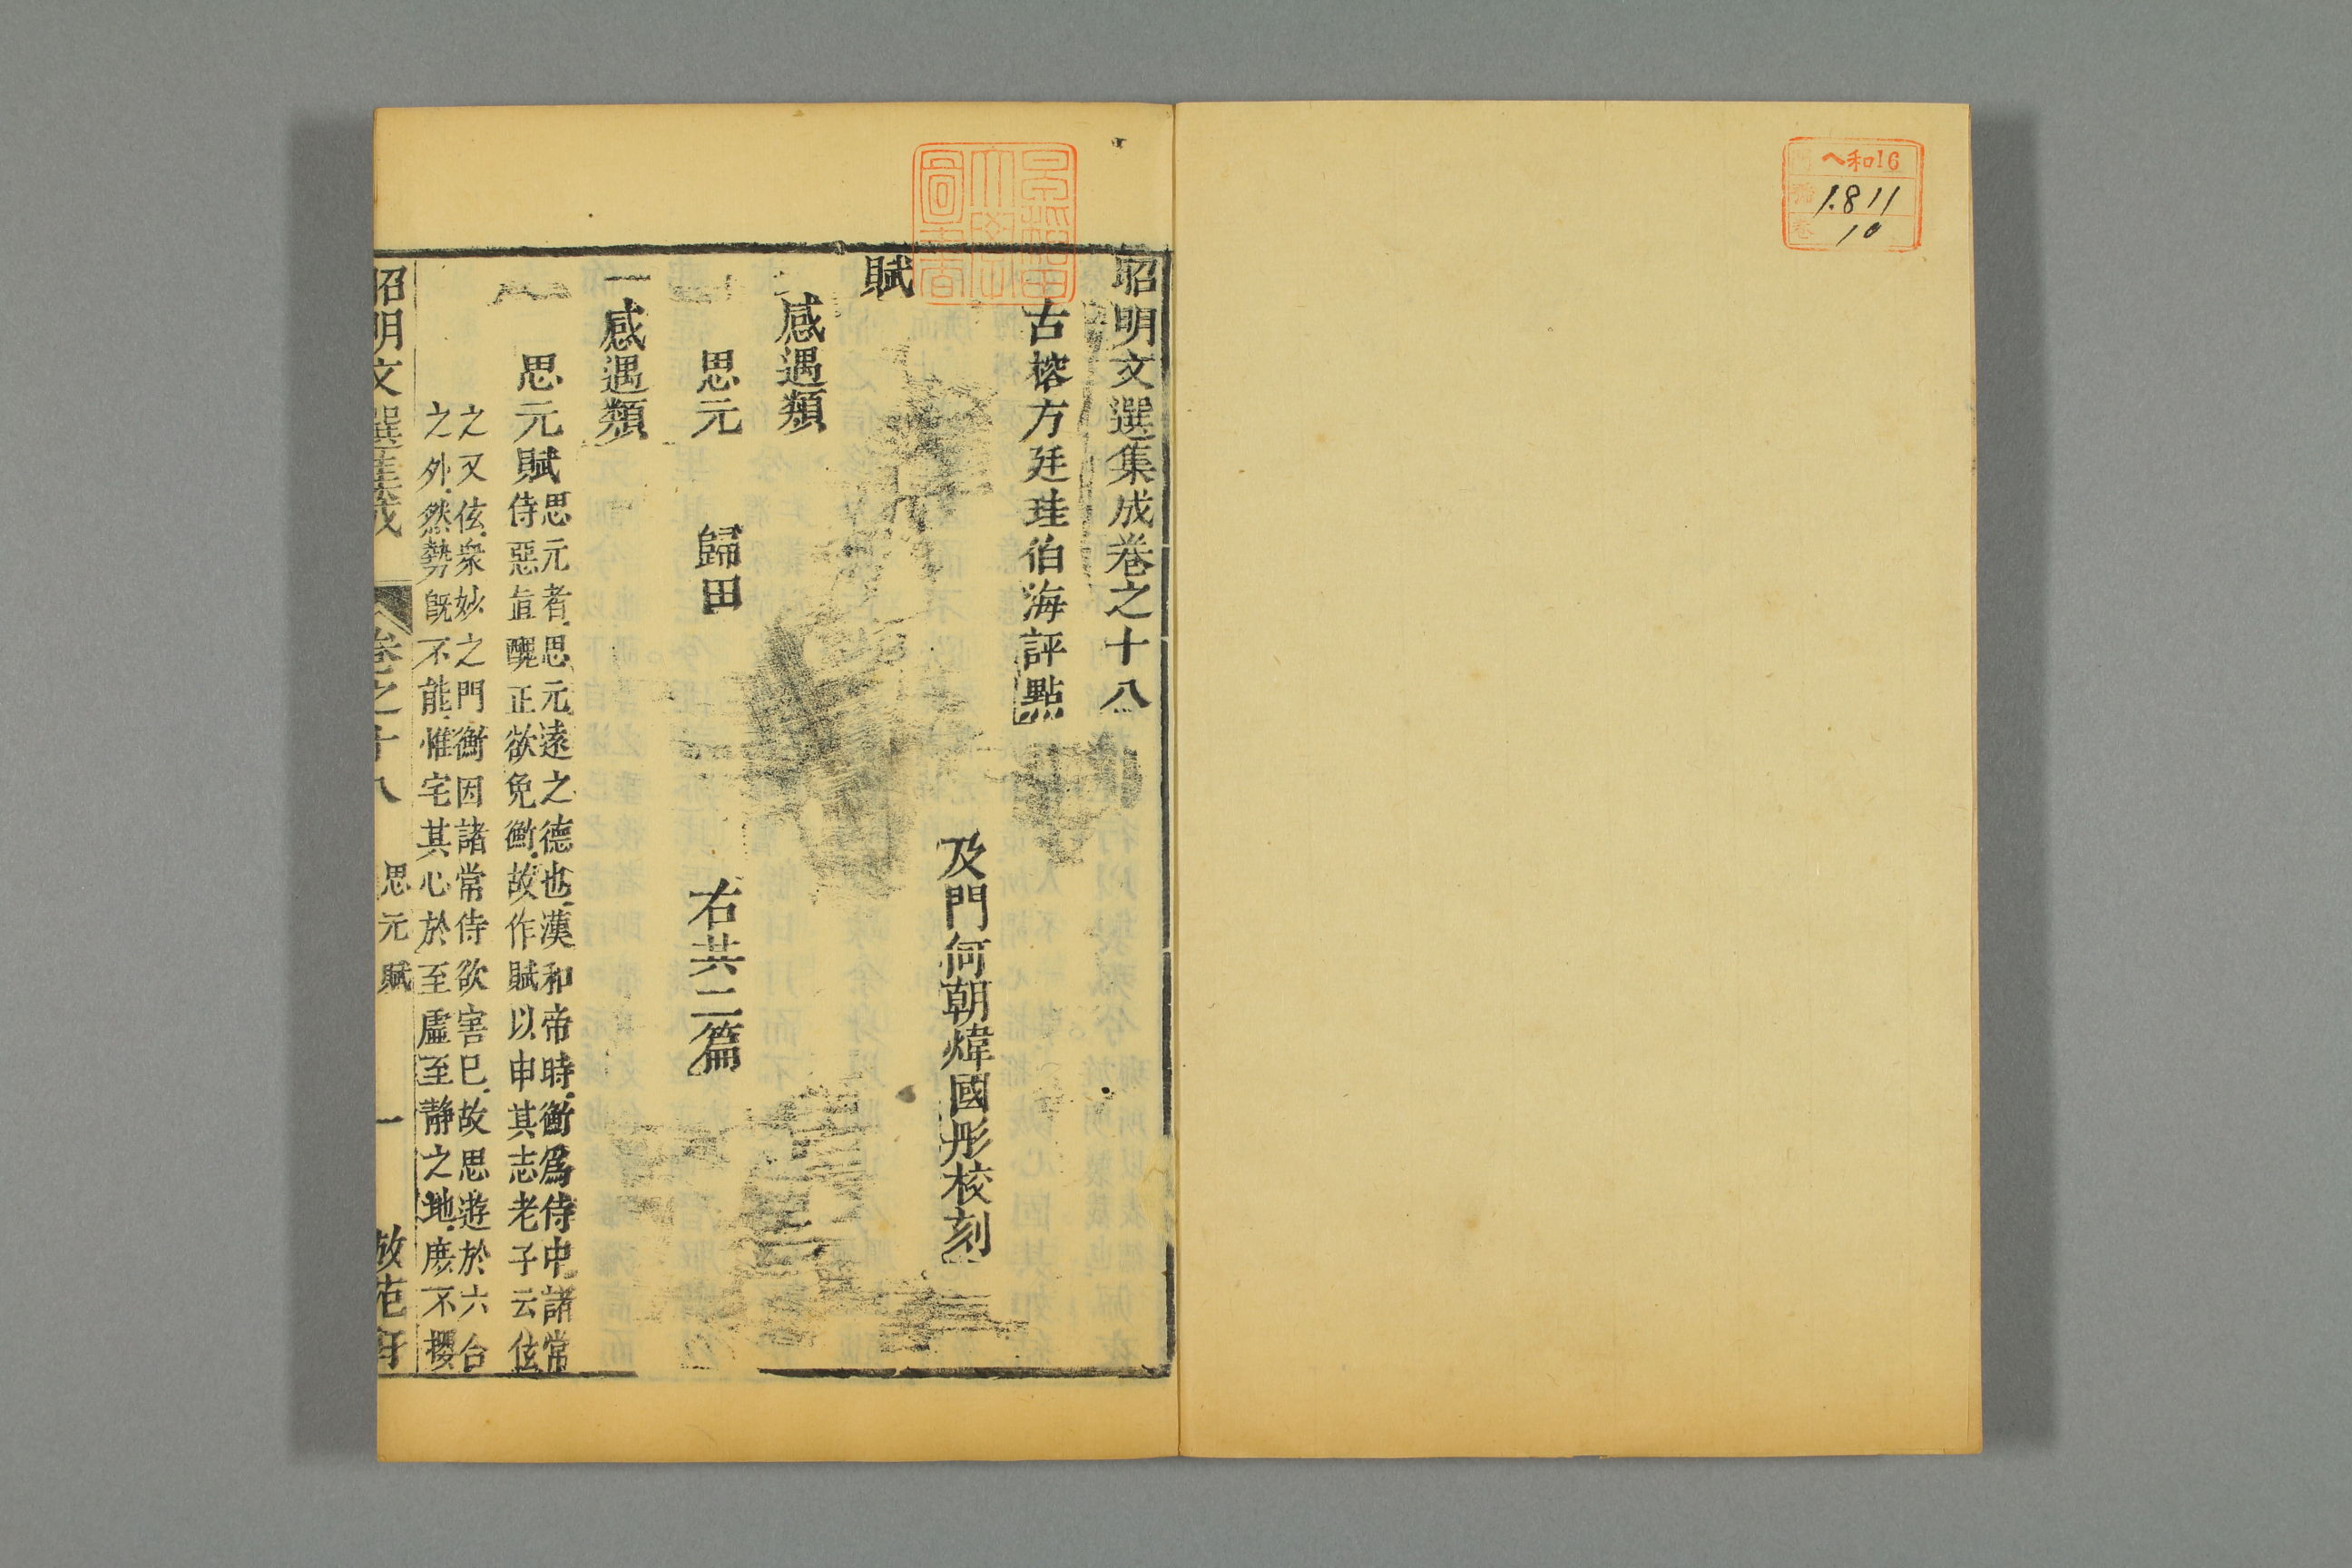 ヘ和16
1811
10
昭明文選集成卷之十八
古榕方廷珪伯海評點
及門何朝煒國彤校刻
賦
感遇類
思元 歸田 右共二篇
感遇類
思元賦
思元者思元遠之德也漢和帝時衡為侍中諸常
侍惡直醜正欲免衡故作賦以申其志老子云伭
之又伭衆妙之門衡因諸常侍欲害巳故思遊於六合
之外然勢旣不能惟宅其心於至虛至靜之地庶不攖
昭明文選集成 卷之十八 思元賦 一 倣范軒
早稻田大學圖書